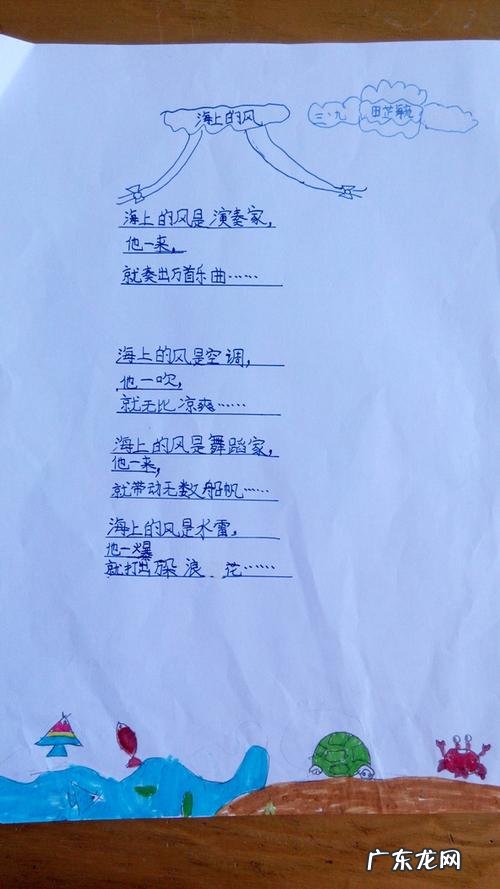 海上的风
三.九
田芷
海上的风是演奏家,
他一来,
就奏出万首乐曲……
海上的风是空调,
他一吹,
就无比凉爽……
海上的风是舞蹈家,
他一来,
就带动无数船帆……
海上的风是水雷,
他一爆
就打出 浪 花……
广东龙网